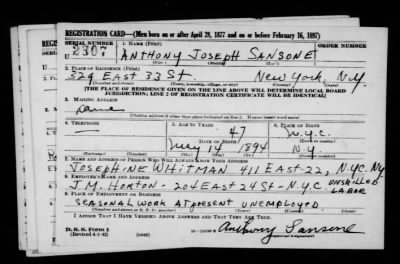 REGISTRATION CARD—(Men born on or after April 28, 1877 and on or before February 16, 1897)
SERIAL NUMBER 1. NAME (Print) ORDER NUMBER
U 2307 ANTHONY JOSEPH SANSONE
(First) (Middle) (Last)
2. PLACE OF RESIDENCE (Print)
329 EAST 33 St NEW YORK, N.Y.
(Number and street) (Town, township, village, or city) (County) (State)
[THE PLACE OF RESIDENCE GIVEN ON THE LINE ABOVE WILL DETERMINE LOCAL BOARD
JURISDICTION; LINE 2 OF REGISTRATION CERTIFICATE WILL BE IDENTICAL]
3. MAILING ADDRESS
Same
4. TELEPHONE 5. AGE IN YEARS 6. PLACE OF BIRTH
47 N.Y.C.
DATE OF BIRTH
14 1894 N.Y.
7. NAME AND ADDRESS OF PERSON WHO WILL ALWAYS KNOW YOUR ADDRESS
JOSEPHINE WHITMAN 411 EAST-22, N.Y.C. NY
8. EMPLOYER'S NAME AND ADDRESS
J.M. HORTON - 204 EAST 24 St - N.Y.C. UNSKILLED LABOR
9. PLACE OF EMPLOYMENT OR BUSINESS
SEASONAL WORK AT PRESENT UNEMPLOYED
I AFFIRM THAT I HAVE VERIFIED ABOVE ANSWERS AND THAT THEY ARE TRUE.
D. S. S. Form 1
(Revised 4-1-42) (over)
Anthony Sansone